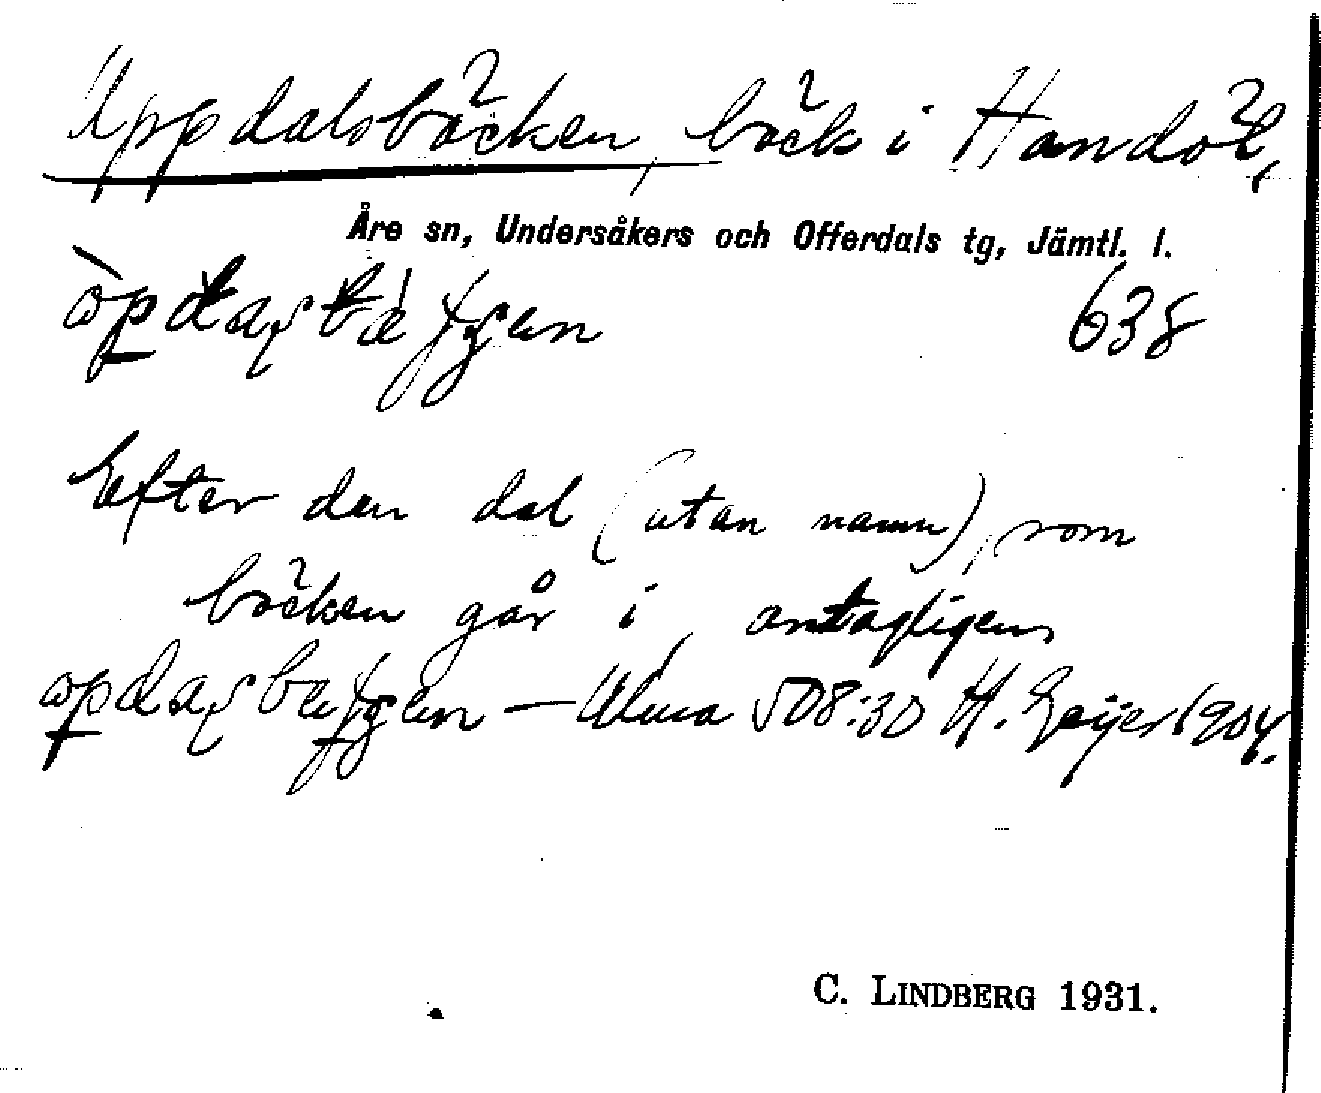 Uppdalsbäcken, bäck i Handöl,
Åre sn, Undersåkers och Offerdals tg, Jämtl. l.
638
Efter den dal (utan namn), som
bäcken går i antagligen
— Ulma 508:30 H. Geijer 1904.
C. LINDBERG 1931.